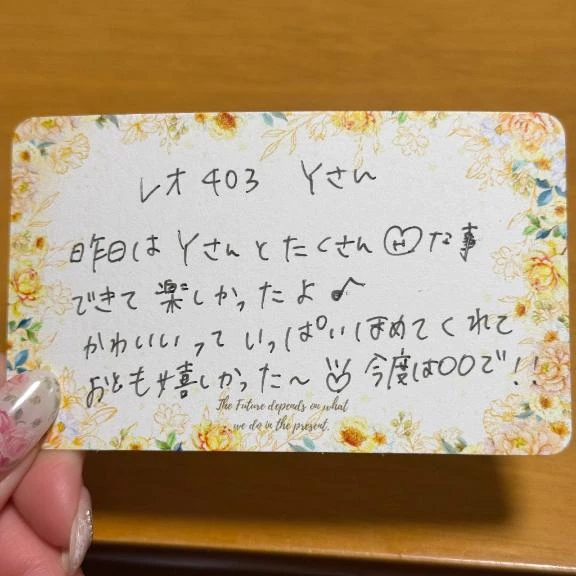 レオ 403 Yさん
昨日は YさんとたくさんHな事
できて楽しかったよ♪
かわいいっていっぱいほめてくれて
おとも嬉しかった〜 今度は〇〇で!!
The Future depends on what
we do in the present.